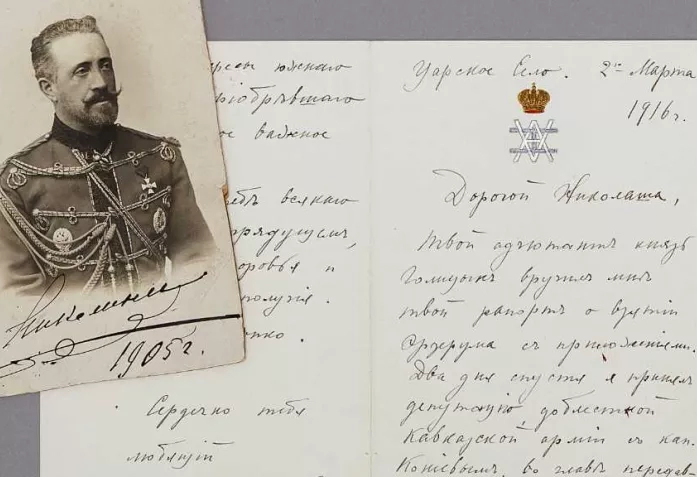 Николай
1905г.
ресы южнаго
ріобрѣвшаго
ое важное
ебѣ всякаго
рядущемъ,
оровья и
получія.
Сердечно тебя
любящій
Царское Село. 2го Марта
1916г.
Дорогой Николаша,
твой адъютантъ князь
Голицынъ вручилъ мнѣ
твой рапортъ о взятіи
Эрзерума съ приложеніями.
Два дня спустя я принялъ
депутацію доблестной
Кавказской арміи съ кап.
Коніевымъ во главѣ передав-